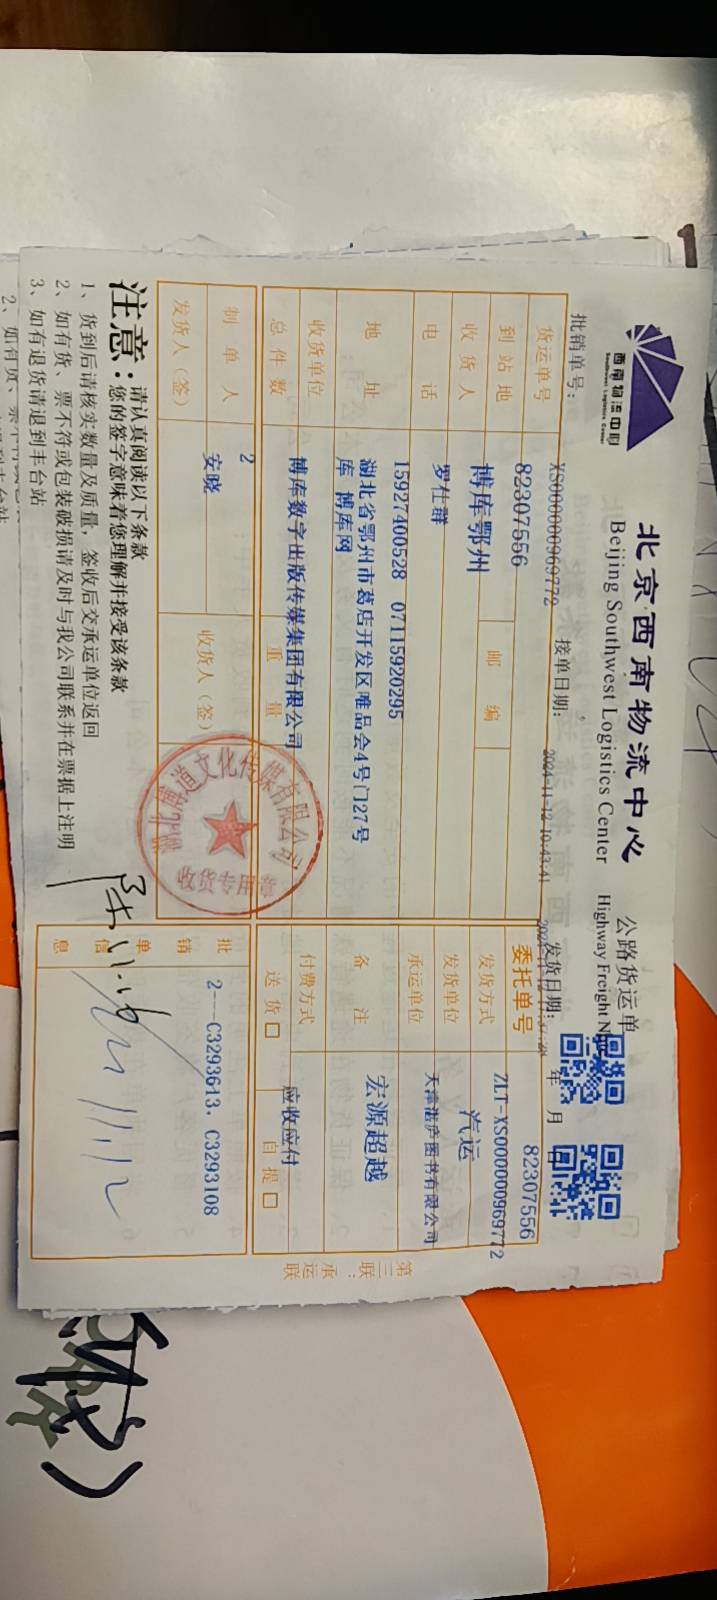 西南物流中心
Southwest Logistics Center
北京西南物流中心 公路货运单
Beijing Southwest Logistics Center Highway Freight
批销单号： XS000000969772 接单日期： 2024-11-12 10:43:41 发货日期： 年 月 日
货运单号 82307556 委托单号 82307556
ZLT-XS000000969772
到站地 博库鄂州 邮编 发货方式 汽运
收货人 罗仕群 发货单位 天津湛庐图书有限公司
电话 15927400528 07115920295 承运单位
地址 湖北省鄂州市葛店开发区唯品会4号门27号
库 博库网
备注 宏源超越
收货单位 博库数字出版传媒集团有限公司 付费方式 应收应付
总件数 2 重量 送货 自提
制单人 安晓 收货人（签）
发货人（签）
批销单信息 2---C3293613、C3293108
文化传媒有限公司
收货专用章
注意： 请认真阅读以下条款
您的签字意味着您理解并接受该条款
1、货到后请核实数量及质量，签收后交承运单位返回
2、如有货、票不符或包装破损请及时与我公司联系并在票据上注明
3、如有退货请退到丰台站
第三联：承运联